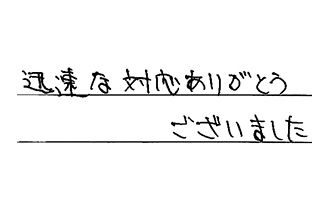 迅速な対応ありがとう
ございました